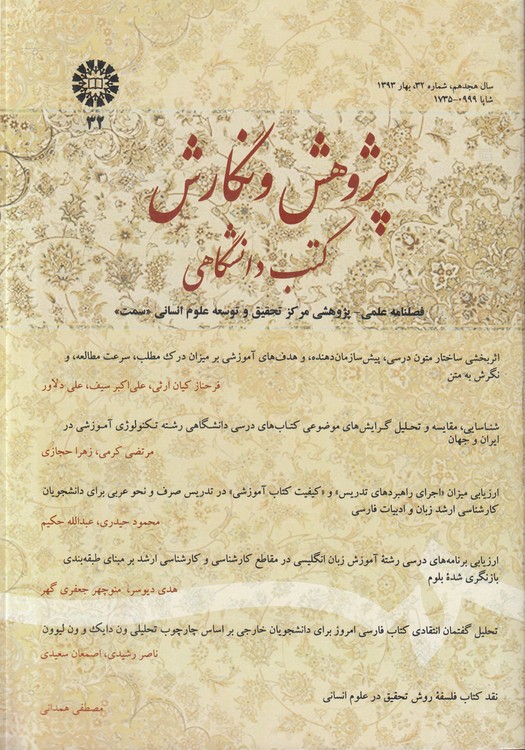 سال هجدهم، شماره ۳۲، بهار ۱۳۹۳
شاپا ۰۹۹۹-۱۷۳۵
۳۲
پژوهش و نگارش
کتب دانشگاهی
فصلنامه علمی - پژوهشی مرکز تحقیق و توسعه علوم انسانی «سمت»
اثربخشی ساختار متون درسی، پیش‌سازمان‌دهنده، و هدف‌های آموزشی بر میزان درک مطلب، سرعت مطالعه، و
نگرش به متن
فرحناز کیان ارثی، علی‌اکبر سیف، علی دلاور
شناسایی، مقایسه و تحلیل گرایش‌های موضوعی کتاب‌های درسی دانشگاهی رشته تکنولوژی آموزشی در
ایران و جهان
مرتضی کرمی، زهرا حجازی
ارزیابی میزان «اجرای راهبردهای تدریس» و «کیفیت کتاب آموزشی» در تدریس صرف و نحو عربی برای دانشجویان
کارشناسی ارشد زبان و ادبیات فارسی
محمود حیدری، عبدالله حکیم
ارزیابی برنامه‌های درسی رشتهٔ آموزش زبان انگلیسی در مقاطع کارشناسی و کارشناسی ارشد بر مبنای طبقه‌بندی
بازنگری شدهٔ بلوم
هدی دیوسر، منوچهر جعفری گهر
تحلیل گفتمان انتقادی کتاب فارسی امروز برای دانشجویان خارجی بر اساس چارچوب تحلیلی ون دایک و ون لیوون
ناصر رشیدی، اصمعان سعیدی
نقد کتاب فلسفهٔ روش تحقیق در علوم انسانی
مصطفی همدانی